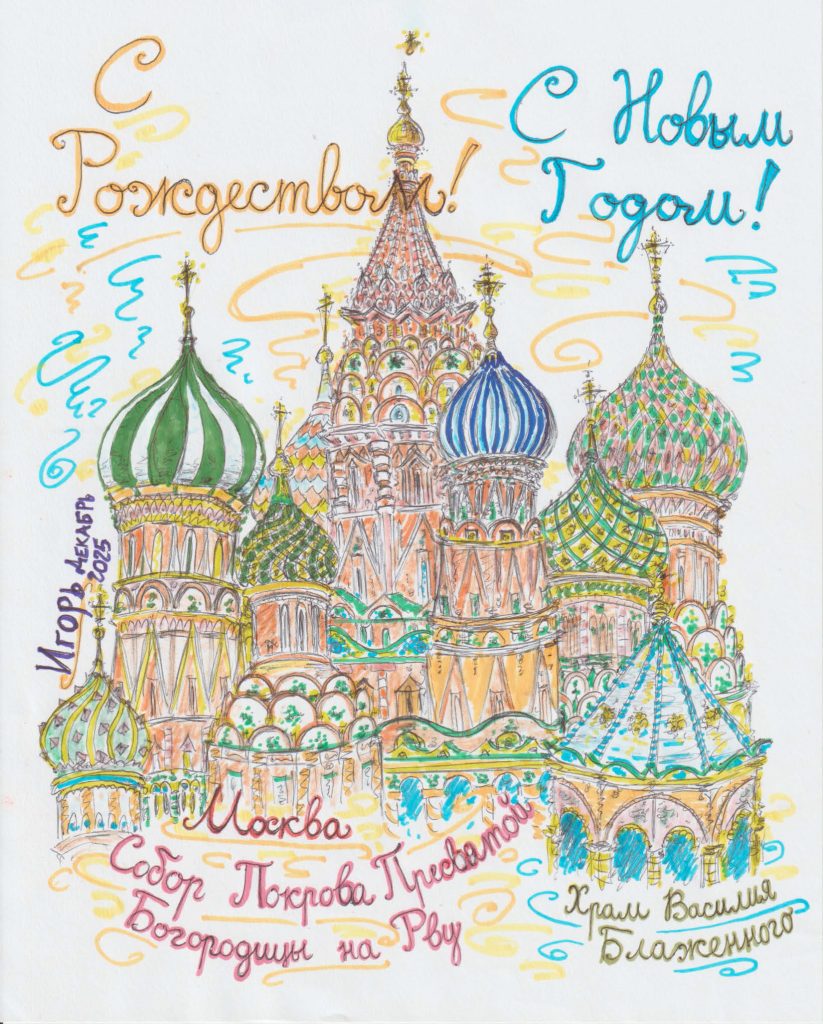 С
Рождеством!
С Новым
Годом!
Игорь Декабрь
2025
Москва
Собор Покрова Пресвятой
Богородицы на Рву
Храм Василия
Блаженного